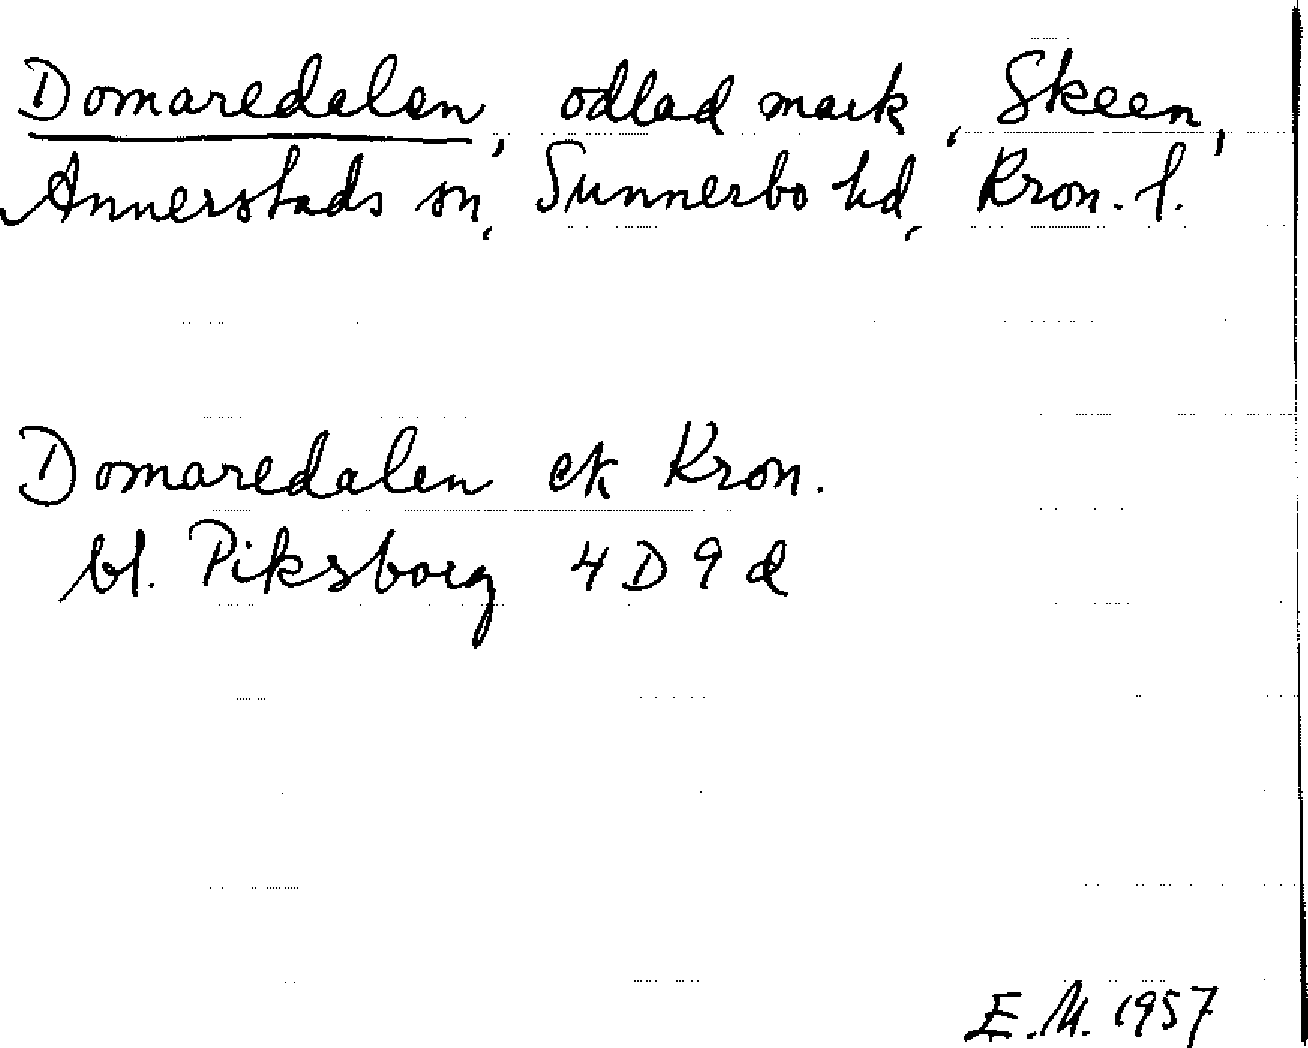 Domaredalen, odlad mark, Skeen,
Annerstads sn, Sunnerbo hd, Kron. l.
Domaredalen ek Kron.
bl. Piksborg 4 D 9 d
E.M. 1957